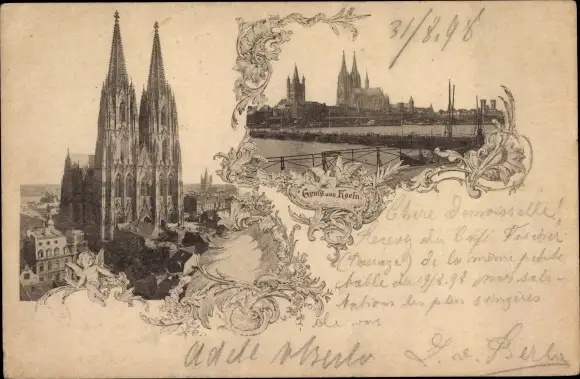 31/8.98
Gruß aus Koeln.
Chère Demoiselle!
Recevez du Café Fischer
(Passage) de la même petite
table du 19/8.98 mes salu-
tations les plus sincères
Adele